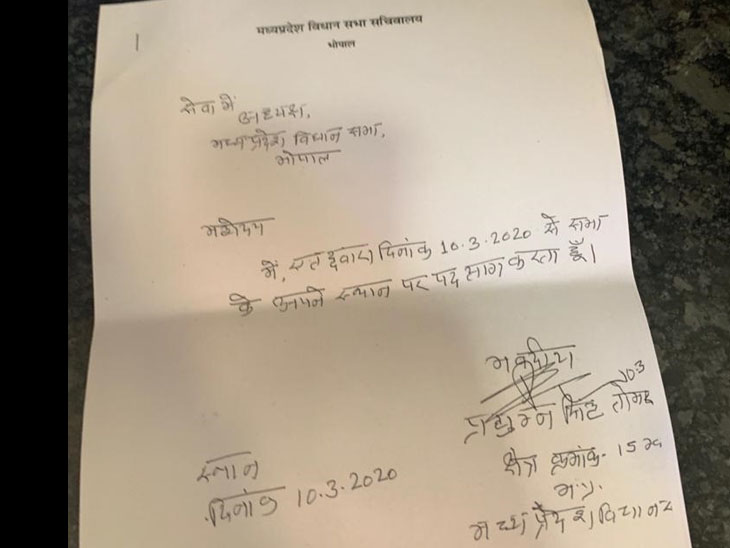 मध्यप्रदेश विधान सभा सचिवालय
भोपाल
सेवा में
अध्यक्ष,
मध्य प्रदेश विधान सभा,
भोपाल
महोदय
में, एतद्द्वारा दिनांक 10.3.2020 से सभा
के अपने स्थान पर पद त्याग करता हूँ।
भवदीय
10.3
प्रद्युम्न सिंह तोमर
क्षेत्र क्रमांक- 15
स्थान
दिनांक 10.3.2020
मध्य प्रदेश विधानसभा